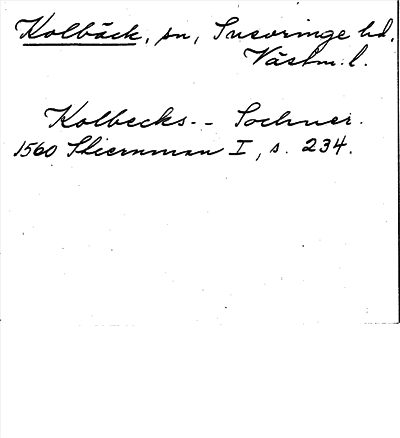 Kolbäck, sn, Snevringe hd,
Västm. l.
Kolbecks-- Sochner.
1560 Stiernman I, s. 234.